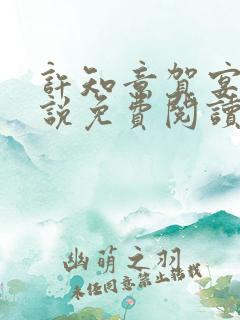 許知意賀宴
說免費閱讀
幽萌之羽
未经同意禁止搭载